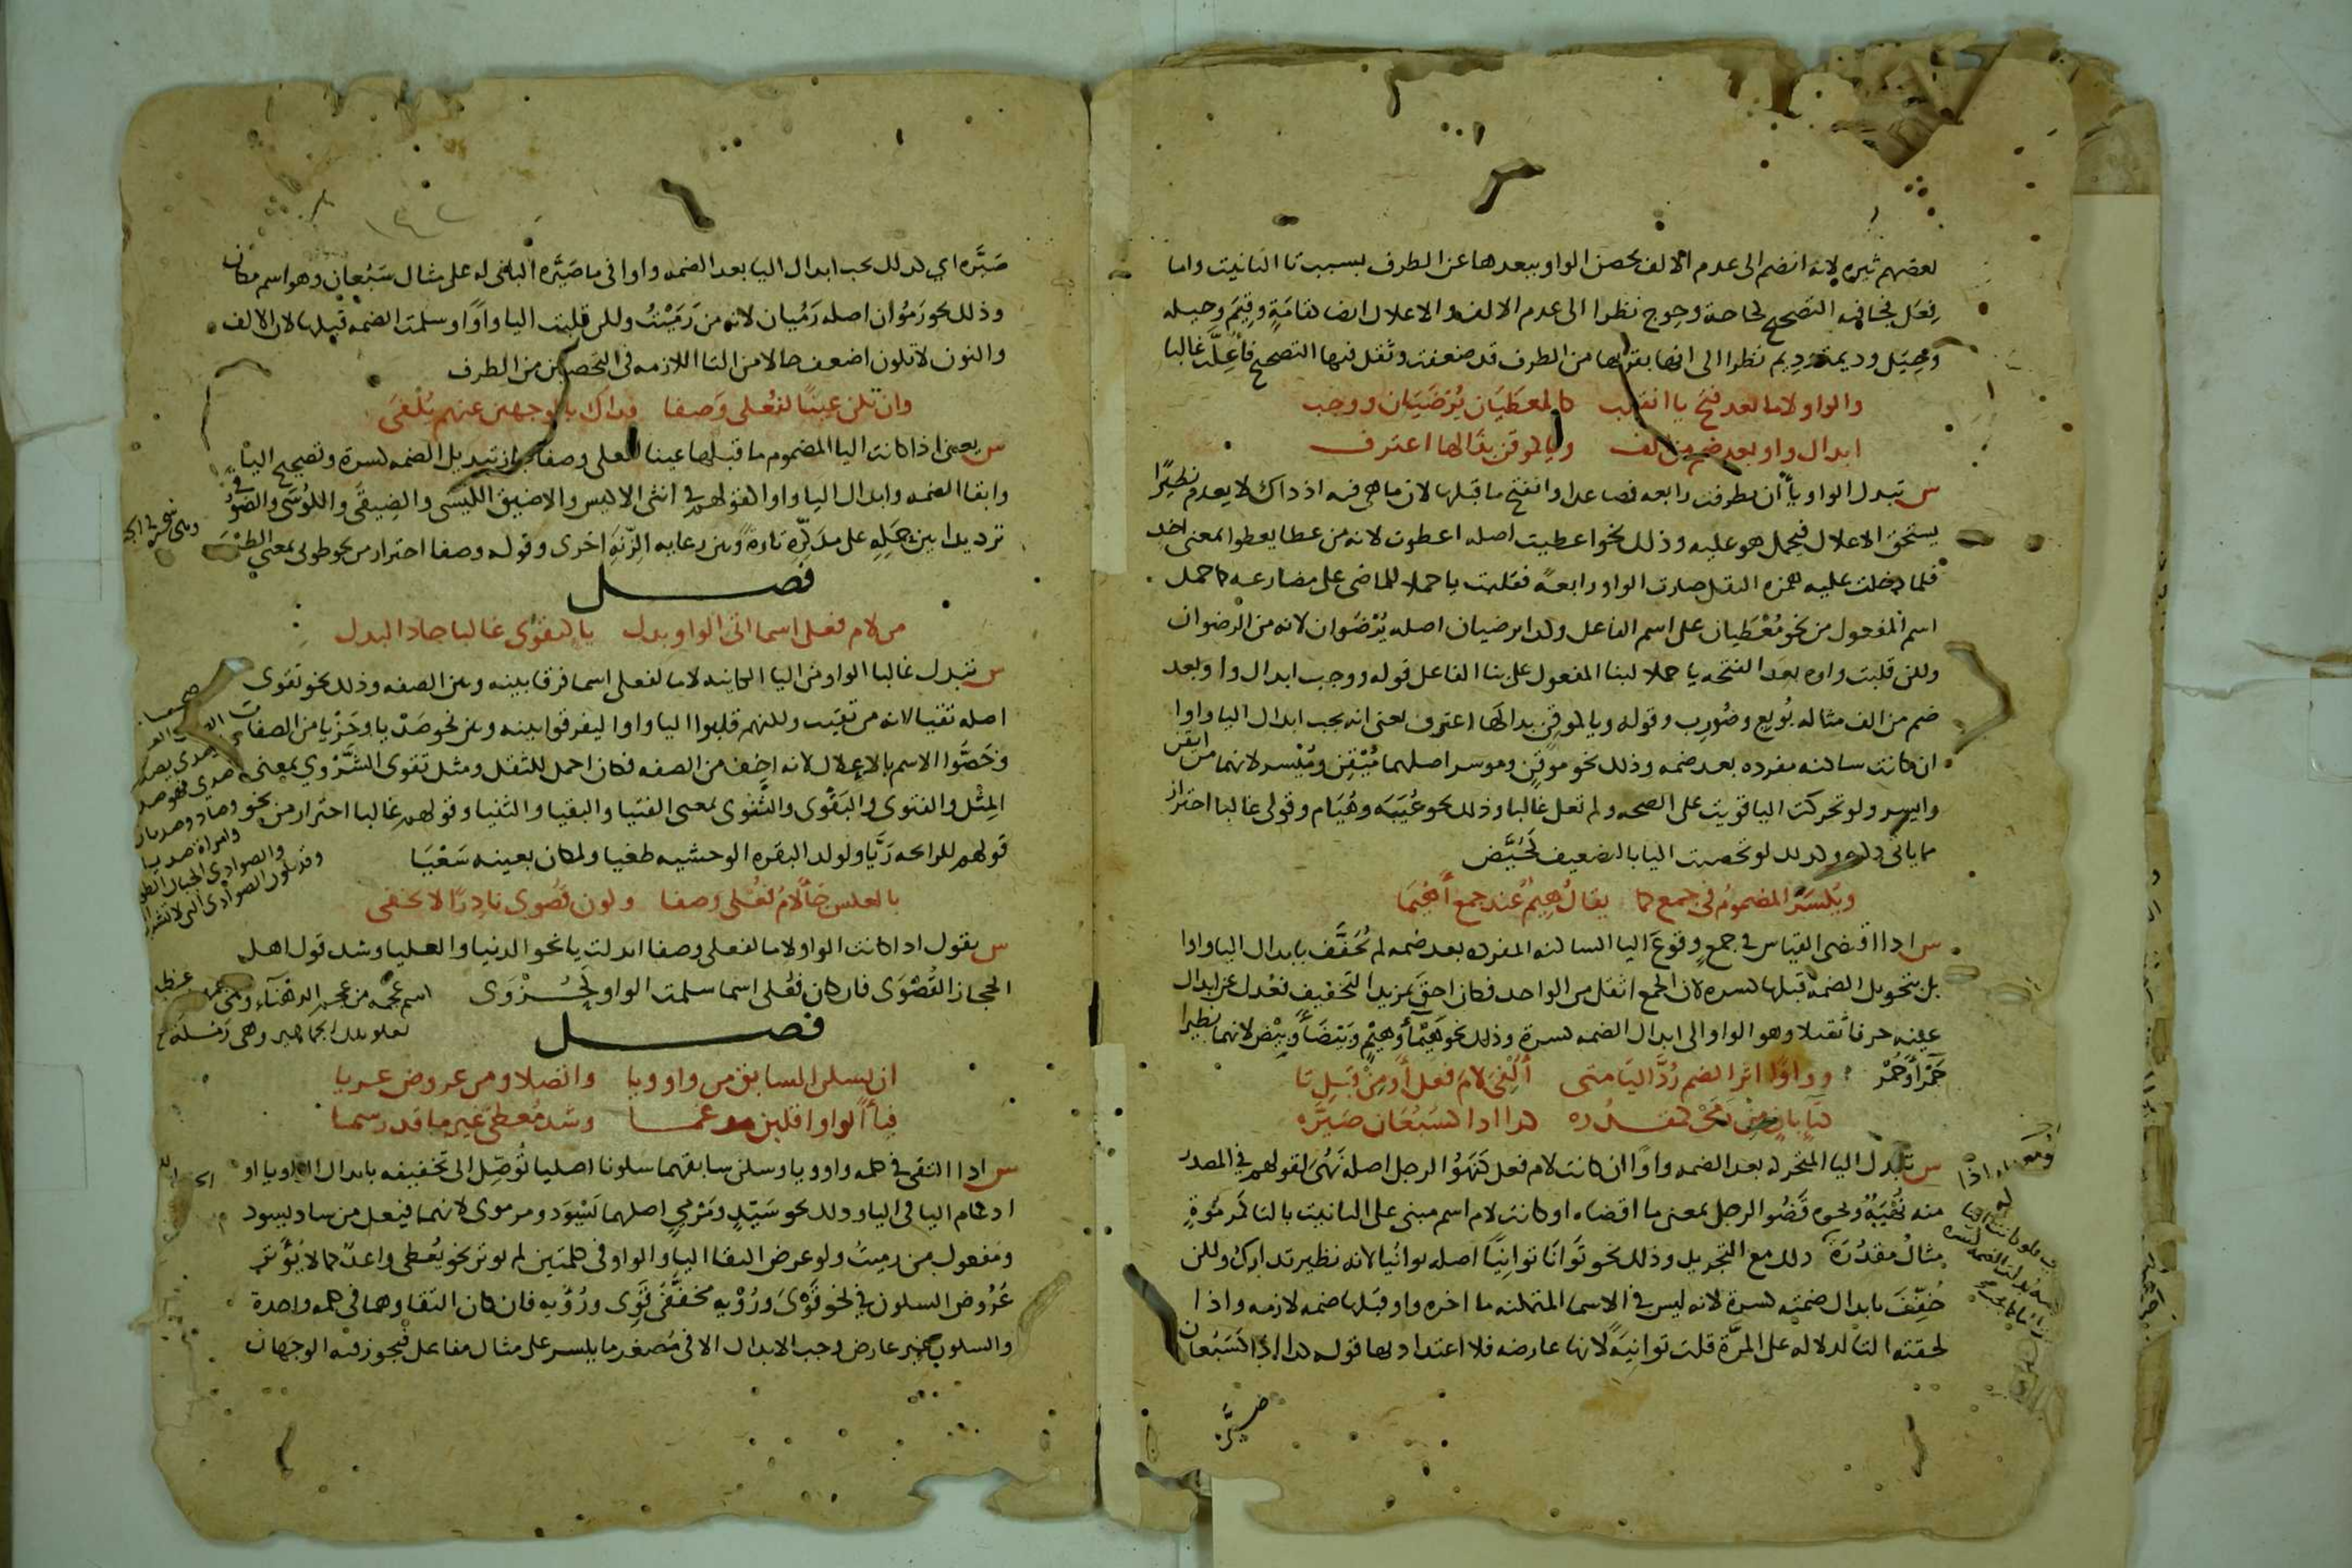 بعضهم ثيره لانه انضم الى عدم الالف تحصن الواو ببعدها عن الطرف بسبب تا التانيث واما
فِعَل فجا فيه التصحيح كحاجة وحوج نظرا الى عدم الالف والاعلال ايضا كقامَةٍ وقِيَم وحيله
وحِيَل وديمة ودِيم نظرا الى انها بقربها من الطرف قد ضعفت وثقل فيها التصحيح فأُعِلّت غالبا
والواو لاما بعد فتح يا انقلب كالمعطَيَان يُرْضَيَان ووجب
ابدال واو بعد ضم من الف ويا كموقن بذا لها اعترف
س تبدل الواو ياً ان تطرفت رابعه فصاعدا وانفتح ما قبلها لان ما هى فيه اذ ذاك لا يعدم نظيرًا
يستحق الاعلال فيحمل هو عليه وذلك نحو اعطيت اصله اعطوت لانه من عطا يعطوا بمعنى اخذ
فلما دخلت عليه همزة النقل صارت الواو رابعةً فقلبت يا حملا للماضى على مضارعه كما حمل
اسم المفعول من نحو مُعْطَيان على اسم الفاعل وكذا يرضيان اصله يُرْضَوان لانه من الرضوان
ولكن قلبت واوه بعد الفتحه يا حملا لبنا المفعول على بنا الفاعل قوله ووجب ابدال واو بعد
ضم من الف مثاله بُويع وضُورب وقوله ويا كموقن بذا لها اعترف يعنى انه يجب ابدال اليا واوا
ان كانت ساكنه مفرده بعد ضمه وذلك نحو موقِن وموسر اصلهما مُيْقِن ومُيْسر لانهما من ايقن
وايسر ولو تحركت اليا قويت على الصحه ولم تعل غالبا وذلك نحو عُيَبَه وهُيَام وقولى غالبا احتراز
مما ياتى ذكره وكذلك لو تحصنت اليا بالتضعيف كحُيَّض
ويُكسَرُ المضمومُ فى جمع كما يقال هِيمٌ عند جمع أَهْيَمَا
س اذا اقتضى القياس فى جمعٍ وقوعَ اليا الساكنه المفرده بعد ضمه لم تُخَفَّف بابدال اليا واوا
بل بتحويل الضمة قبلها كسره لان الجمع اثقل من الواحد فكان احق بمزيد التخفيف فعُدل عن ابدال
عينه حرفا ثقيلا وهو الواو الى ابدال الضمه كسرة وذلك نحو هَيْمَاً وهيْمٍ وبَيْضَاً وبِيْض لانهما نظيرا
حَمْرَاً وحُمْر وواوًا اثر الضم رُدَّ اليَا متى أُلْفِىَ لامَ فعل أو مِنْ قَبْلِ تا
كتَاءِ بانٍ مِن رَمَى كمقدُره كذا اذا كسَبُعَان صَيَّره
س تبدل اليا المتحركه بعد الضمه واوًا ان كانت لام فعل كنَهُوَ الرجل اصله نَهُىَ لقولهم فى المصدر
منه نُهْيَةٌ ونحوه قَضُوَ الرجل بمعنى ما اقضاه او كانت لام اسم مبنى على التانيث بالتا كمَرمُوَةٍ
مثال مقدُرَةٍ وذلك مع التجريد وذلك نحو تَوَانَا توانِيًا اصله توانُيا لانه نظير تدارك ولكن
خُفِّفَ بابدال ضمته كسرة لانه ليس فى الاسما المتمكنه ما اخره واو قبلها ضمه لازمه واذا
لحقته التا للدلاله على المرَّة قلت توانِيَةً لانها عارضه فلا اعتداد بها قوله كذا اذا كَسَبُعان
صَيَّرَه
صَيَّره اي كذلك يجب ابدال اليا بعد الضمه واوا فى ما صَيَّره البانى له على مثال سَبُعان وهو اسم مكان
وذلك نحو رَمُوَان اصله رَمُيان لانه من رَمَيْتُ ولكن قلبت اليا واوًا وسلمت الضمه قبلها لان الالف
والنون لا تكون اضعف حالا من التا اللازمه فى التحصين من الطرف
وان تكن عينًا لفُعلى وَصفا فذاك بالوجهين عنهم يُلْفَى
س يعنى اذا كانت اليا المضموم ما قبلها عينا لفعلى وصفا جاز تبديل الضمه كسرة وتصحيح اليا
وابقا الضمه وابدال اليا واوا كقولهم فى انثى الاكيس والاضيق الكِيسَى والضِيقَى والكُوسَى والضُوقى
ترديدا بين حَملِهِ على مذكرِّه تارةً وبين رعايه الزِّنَهِ اخرى وقوله وصفا احتراز من نحو طوبى بمعنى الطيب
فصل
من لام فعلى اسما اتى الواو بدل يا كتقوَى غالبا جا ذا البدل
س تبدل غالبا الواو من اليا الكاينه لاما لفعلى اسما فرقا بينه وبين الصفه وذلك نحو تقوى
اصله تقيا لانه من تقيت ولكنهم قلبوا اليا واوا ليفرقوا بينه وبين نحو صَدْيا وخَزْيا من الصفات
وخَصُّوا الاسم بالاعلال لانه اخف من الصفه فكان احمل للثقل ومثل تقوى الشَّرْوي بمعنى
المِثْل والفتوى والبَقْوى والثَّنْوى بمعنى الفتيا والبقيا والثنيا وقولهم غالبا احتراز من نحو
قولهم للرائحه رَيَّا ولولد البقره الوحشيه طغيا ولمكان بعينه سَعْيَا
بالعكس جَا لامُ فُعْلَى وصفا وكون قُصْوَى نادِرًا لا يخفى
س يقول اذا كانت الواو لاما لفعلى وصفا ابدلت يا نحو الدنيا والعليا وشذ قول اهل
الحجاز القُصْوَى فان كان فُعْلى اسما سلمت الواو كحُزْوَى
فصل
ان يسكن السابق من واو ويا واتصلا ومن عروض عريا
فياً الواو اقلبن مدغما وشذ مُعطىً غير ما قد رسما
س اذا التقى فى كلمه واو ويا وسكن سابقهما سكونا اصليا تُوُصِّل الى تخفيفه بابدال الواو يا او
ادغام اليا فى اليا وذلك نحو سَيِّدٍ ومَرْمِيٍّ اصلهما سَيْوِد ومرموى لانهما فيعل من ساد يسود
ومفعول من رميتُ ولو عرض التقا اليا والواو فى كلمتين لم يوثر نحو يُعطى واعدٌ كما لا يُؤثّر
عُرُوض السكون فى نحو قَوْىَ ورُوْيهٍ مخفَّفَى قَوِى ورُؤْيه فان كان التقاوهما فى كلمه واحدة
والسكون غير عارض وجب الابدال الا فى مُصغر ما يكسر على مثال مفاعل فيجوز فيه الوجهان